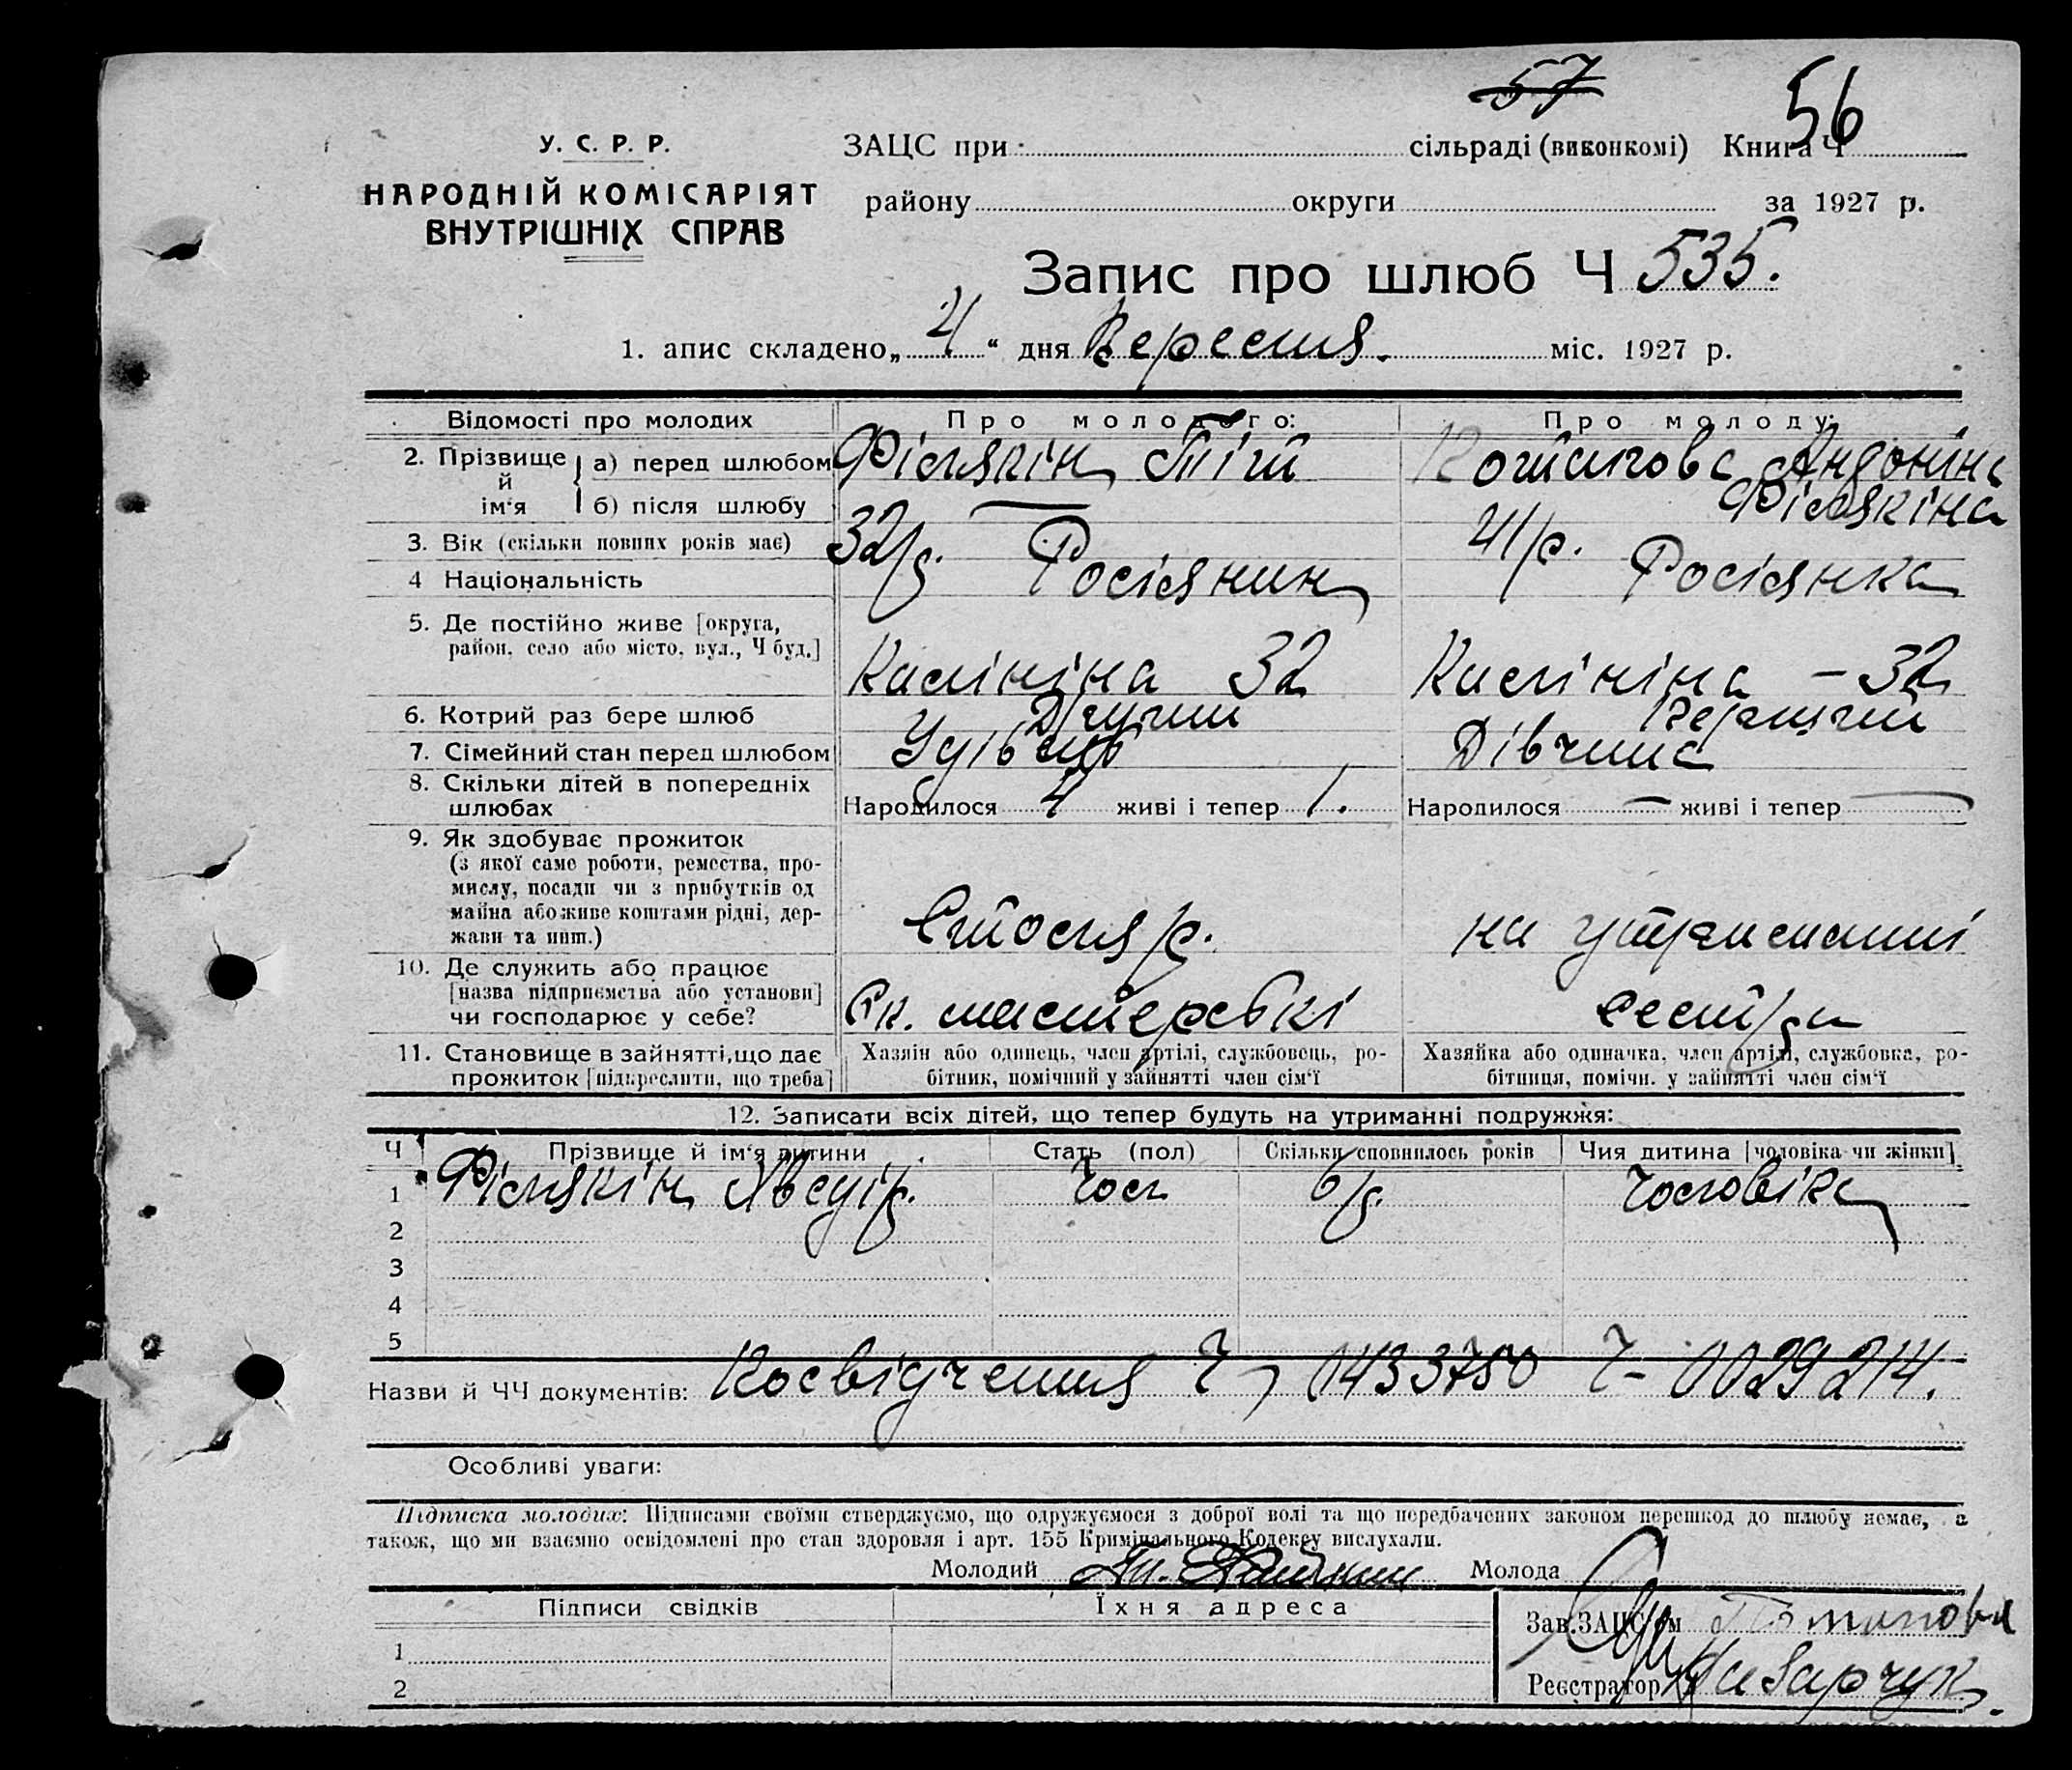 57
56
У. С. Р. Р.
НАРОДНІЙ КОМІСАРІЯТ
ВНУТРІШНІХ СПРАВ
ЗАЦС при сільраді (виконкомі) Книга Ч
району округи за 1927 р.
Запис про шлюб Ч 535.
1. апис складено „4“ дня Вересня. міс. 1927 р.
Відомості про молодих Про молодого: Про молоду:
2. Прізвище й ім'я а) перед шлюбом Філякін Андоніна
б) після шлюбу — Філякіна
3. Вік (скільки повних років має) 32/р. 41/р.
4 Національність Росіянин Росіянка
5. Де постійно живе [округа,
район, село або місто, вул., Ч буд.] Калініна 32 Калініна – 32
6. Котрий раз бере шлюб Другий Перший
7. Сімейний стан перед шлюбом Удівець Дівчина
8. Скільки дітей в попередніх
шлюбах Народилося 4 живі і тепер 1. Народилося — живі і тепер —
9. Як здобуває прожиток
(з якої саме роботи, ремества, про-
мислу, посади чи з прибутків од
майна або живе коштами рідні, дер-
жави та инш.) Столяр. на утриманні
10. Де служить або працює
[назва підприємства або установи]
чи господарює у себе? мастерські сестри
11. Становище в зайнятті, що дає
прожиток [підкреслити, що треба]
Хазяїн або одинець, член артілі, службовець, ро-
бітник, помічний у зайнятті член сім'ї
Хазяйка або одиначка, член артілі, службовка, ро-
бітниця, помічн. у зайнятті член сім'ї
12. Записати всіх дітей, що тепер будуть на утриманні подружжя:
Ч Прізвище й ім'я дитини Стать (пол) Скільки сповнилось років Чия дитина [чоловіка чи жінки]
1 Філякін Чол 6/р. Чоловіка
2
3
4
5
Назви й ЧЧ документів: Посвідчення Ч 0433750 Ч – 0029214.
Особливі уваги:
Підписка молодих: Підписами своїми стверджуємо, що одружуємося з доброї волі та що передбачених законом перешкод до шлюбу немає, а
також, що ми взаємно освідомлені про стан здоровля і арт. 155 Кримінального Кодексу вислухали.
Молодий Молода
Підписи свідків Їхня адреса
1
2
Зав. ЗАЦС'ом
Реєстратор